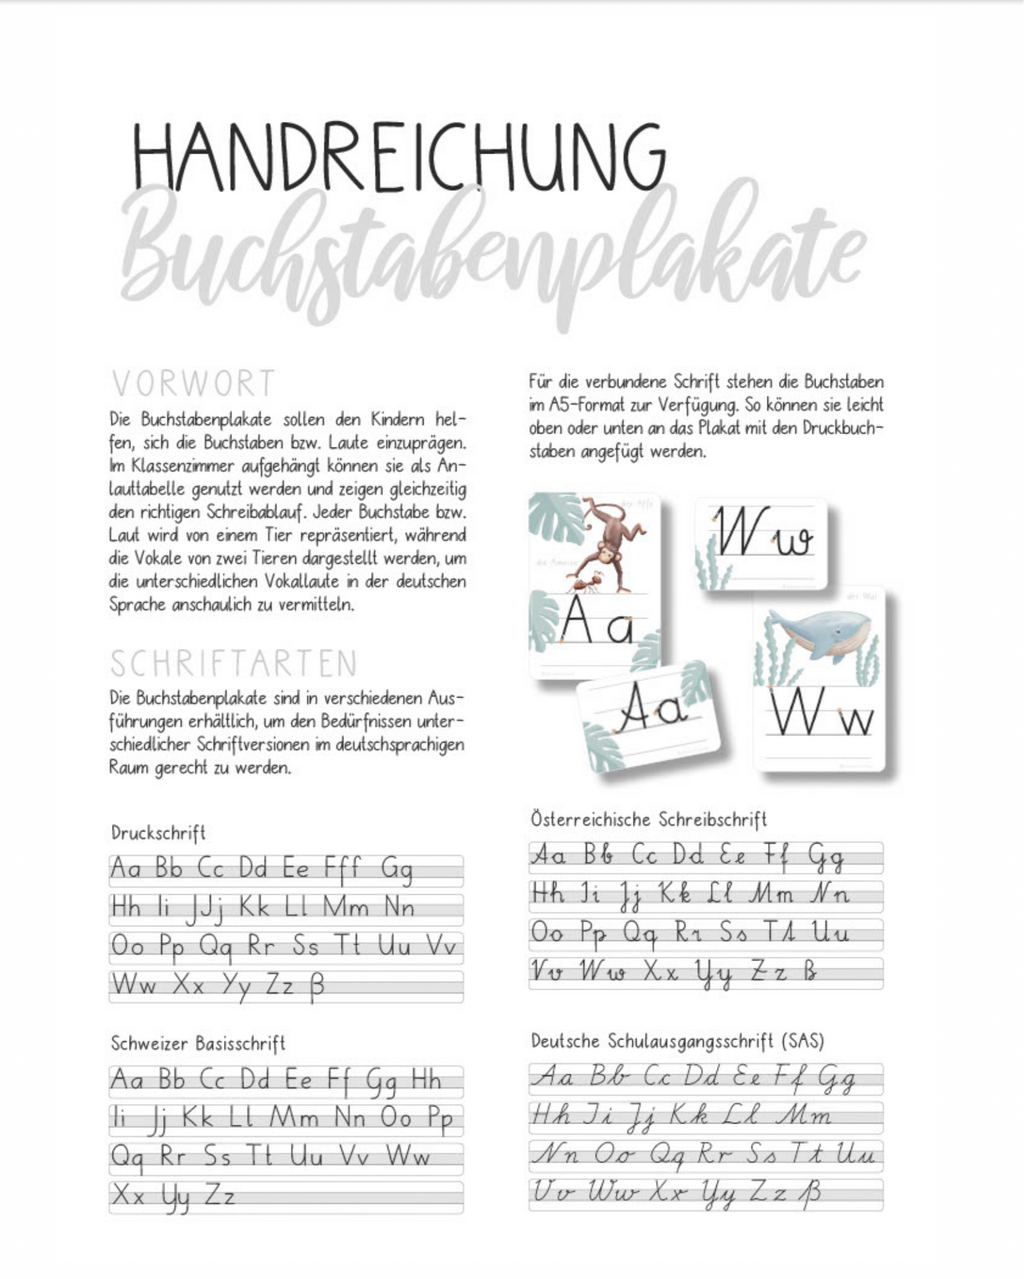 HANDREICHUNG
Buchstabenplakate
VORWORT
Die Buchstabenplakate sollen den Kindern hel-
fen, sich die Buchstaben bzw. Laute einzuprägen.
Im Klassenzimmer aufgehängt können sie als An-
lauttabelle genutzt werden und zeigen gleichzeitig
den richtigen Schreibablauf. Jeder Buchstabe bzw.
Laut wird von einem Tier repräsentiert, während
die Vokale von zwei Tieren dargestellt werden, um
die unterschiedlichen Vokallaute in der deutschen
Sprache anschaulich zu vermitteln.
SCHRIFTARTEN
Die Buchstabenplakate sind in verschiedenen Aus-
führungen erhältlich, um den Bedürfnissen unter-
schiedlicher Schriftversionen im deutschsprachigen
Raum gerecht zu werden.
Druckschrift
Aa Bb Cc Dd Ee Fff Gg
Hh Ii JJj Kk Ll Mm Nn
Oo Pp Qq Rr Ss Tt Uu Vv
Ww Xx Yy Zz ß
Schweizer Basisschrift
Aa Bb Cc Dd Ee Ff Gg Hh
Ii Jj Kk Ll Mm Nn Oo Pp
Qq Rr Ss Tt Uu Vv Ww
Xx Yy Zz
Für die verbundene Schrift stehen die Buchstaben
im A5-Format zur Verfügung. So können sie leicht
oben oder unten an das Plakat mit den Druckbuch-
staben angefügt werden.
der Affe
die Ameise
Aa
Ww
der Wal
Aa
Ww
Österreichische Schreibschrift
Aa Bb Cc Dd Ee Ff Gg
Hh Ii Jj Kk Ll Mm Nn
Oo Pp Qq Rr Ss Tt Uu
Vv Ww Xx Yy Zz ß
Deutsche Schulausgangsschrift (SAS)
Aa Bb Cc Dd Ee Ff Gg
Hh Ii Jj Kk Ll Mm
Nn Oo Qq Rr Ss Tt Uu
Vv Ww Xx Yy Zz ß